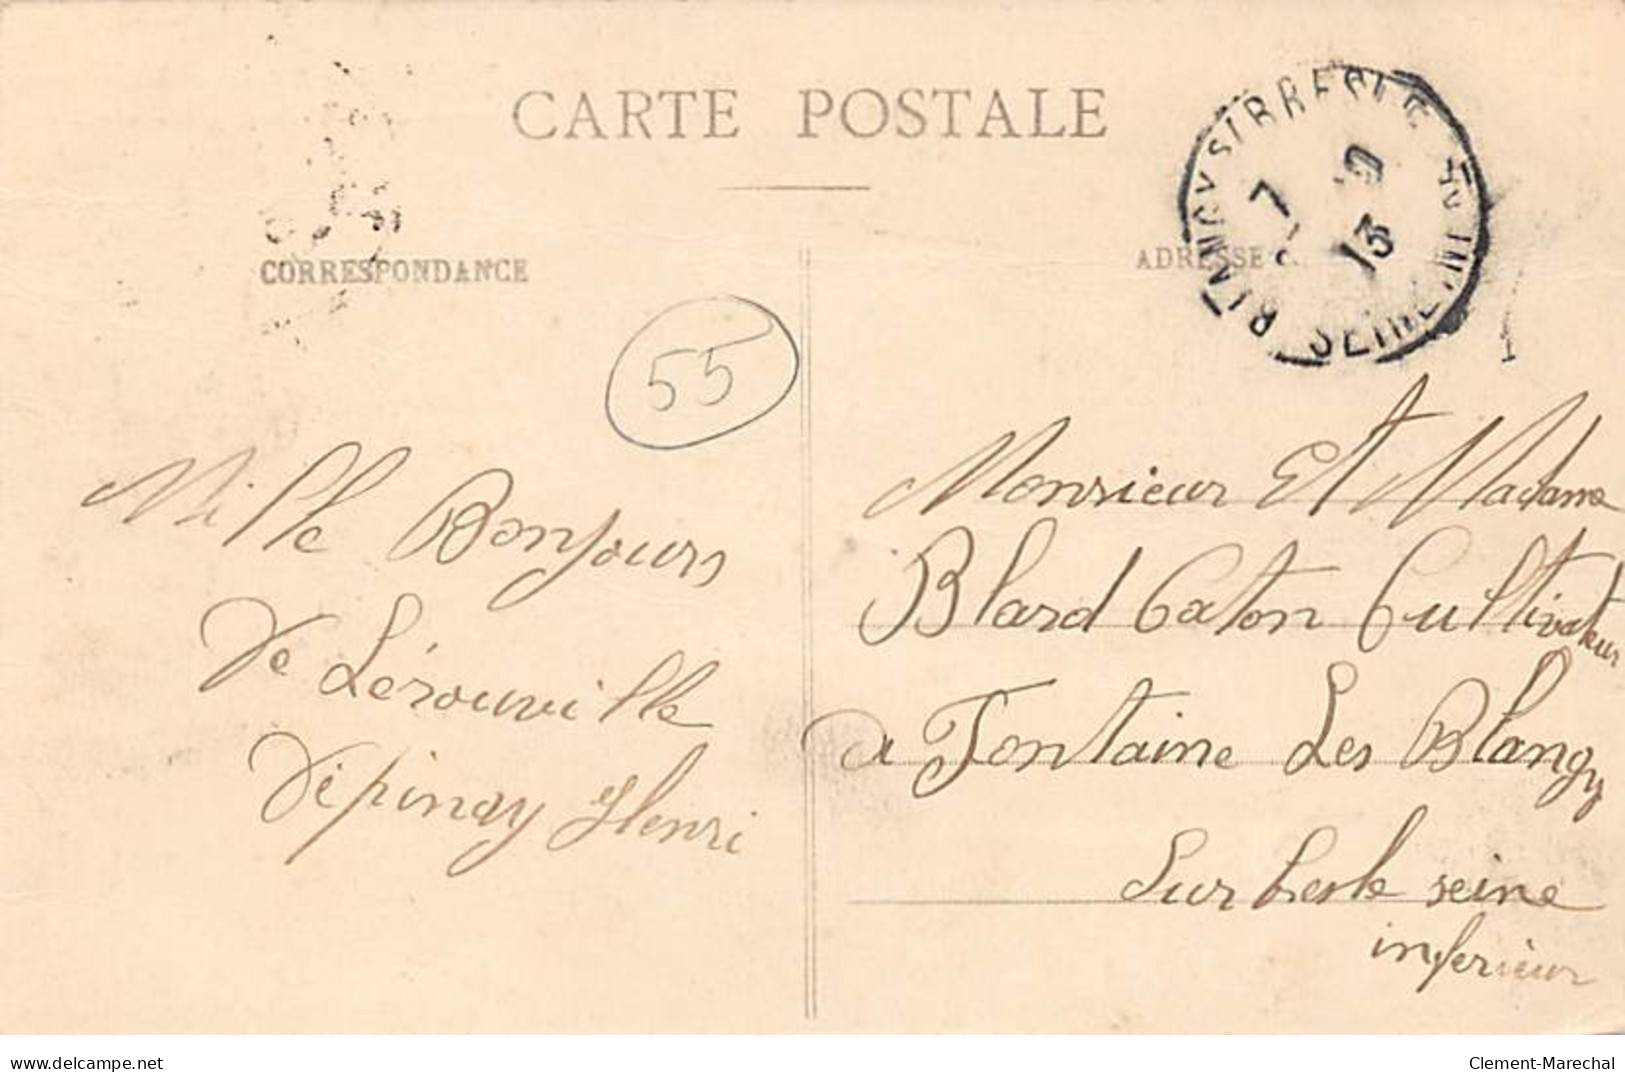 CARTE POSTALE
CORRESPONDANCE
ADRESSE
7 -9
13
SEINE INF
55
Mille Bonjours
De Lérouville
Dépinay Henri
Monsieur Et Madame
Blard Caton Cultivateur
a Fontaine Les Blangy
Sur besle seine
inferieur
www.delcampe.net
Clement-Marechal